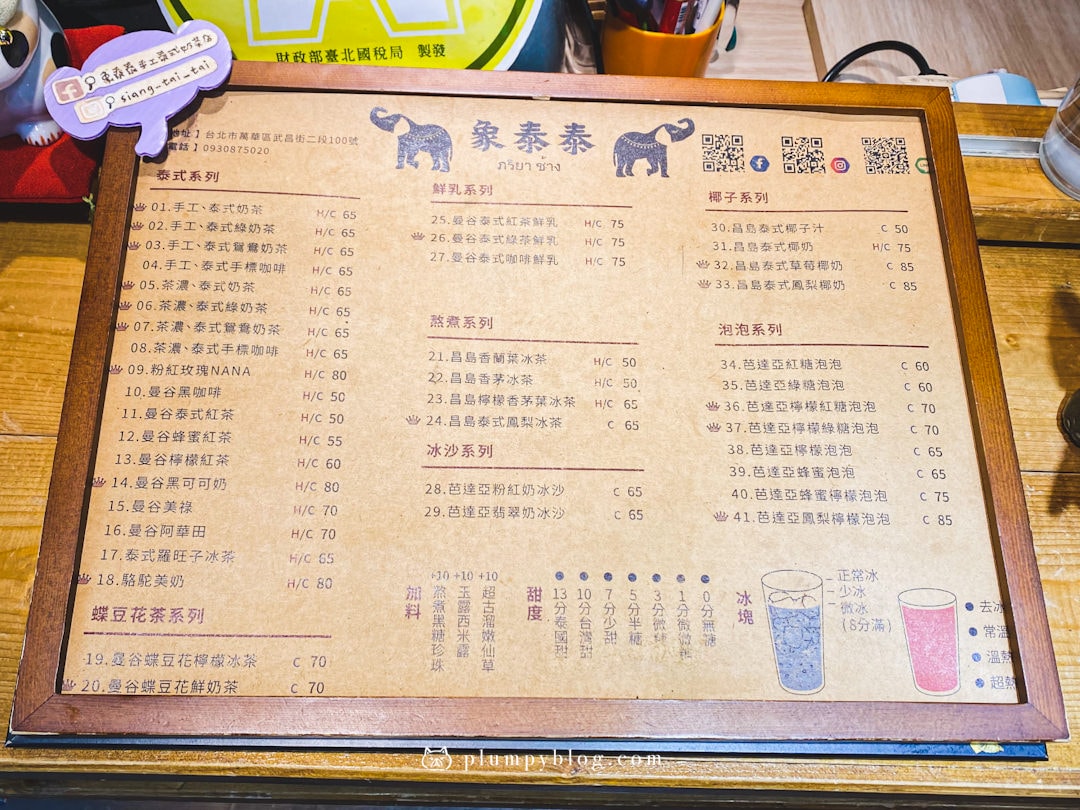 財政部臺北國稅局 製發
siang_tai_tai
地址】台北市萬華區武昌街二段100號
電話】0930875020
象泰泰
ภริยา ช้าง
泰式系列
01.手工、泰式奶茶 H/C 65
02.手工、泰式綠奶茶 H/C 65
03.手工、泰式鴛鴦奶茶 H/C 65
04.手工、泰式手標咖啡 H/C 65
05.茶濃、泰式奶茶 H/C 65
06.茶濃、泰式綠奶茶 H/C 65
07.茶濃、泰式鴛鴦奶茶 H/C 65
08.茶濃、泰式手標咖啡 H/C 65
09.粉紅玫瑰NANA H/C 80
10.曼谷黑咖啡 H/C 50
11.曼谷泰式紅茶 H/C 50
12.曼谷蜂蜜紅茶 H/C 55
13.曼谷檸檬紅茶 H/C 60
14.曼谷黑可可奶 H/C 80
15.曼谷美祿 H/C 70
16.曼谷阿華田 H/C 70
17.泰式羅旺子冰茶 H/C 65
18.駱駝美奶 H/C 80
蝶豆花茶系列
19.曼谷蝶豆花檸檬冰茶 C 70
20.曼谷蝶豆花鮮奶茶 C 70
鮮乳系列
25.曼谷泰式紅茶鮮乳 H/C 75
26.曼谷泰式綠茶鮮乳 H/C 75
27.曼谷泰式咖啡鮮乳 H/C 75
熬煮系列
21.昌島香蘭葉冰茶 H/C 50
22.昌島香茅冰茶 H/C 50
23.昌島檸檬香茅葉冰茶 H/C 65
24.昌島泰式鳳梨冰茶 C 65
冰沙系列
28.芭達亞粉紅奶冰沙 C 65
29.芭達亞翡翠奶冰沙 C 65
椰子系列
30.昌島泰式椰子汁 C 50
31.昌島泰式椰奶 H/C 75
32.昌島泰式草莓椰奶 C 85
33.昌島泰式鳳梨椰奶 C 85
泡泡系列
34.芭達亞紅糖泡泡 C 60
35.芭達亞綠糖泡泡 C 60
36.芭達亞檸檬紅糖泡泡 C 70
37.芭達亞檸檬綠糖泡泡 C 70
38.芭達亞檸檬泡泡 C 65
39.芭達亞蜂蜜泡泡 C 65
40.芭達亞蜂蜜檸檬泡泡 C 75
41.芭達亞鳳梨檸檬泡泡 C 85
加料
+10 熬煮黑糖珍珠
+10 玉露西米露
+10 超古溜嫩仙草
甜度
13分泰國甜
10分台灣甜
7分少甜
5分半糖
3分微糖
1分微微糖
0分無糖
冰塊
正常冰
少冰
微冰
(8分滿)
去冰
常溫
溫熱
超熱
plumpyblog.com